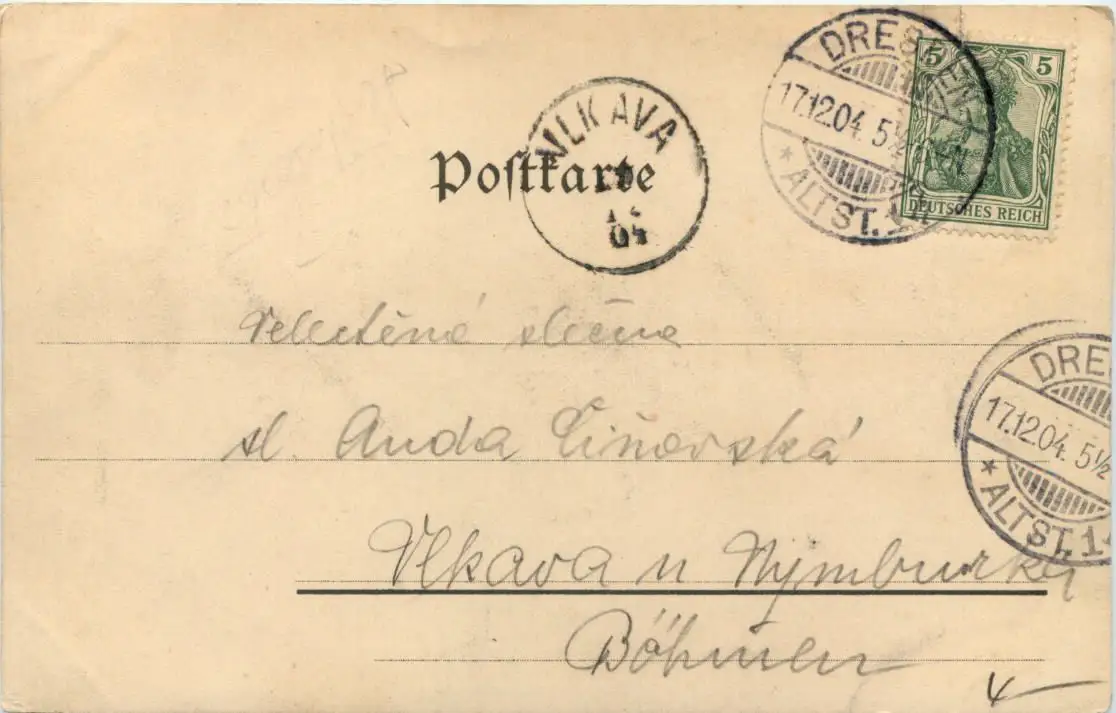 DRESDEN
17.12.04. 5½
* ALTST. 1
5 5
DEUTSCHES REICH
VLKAVA
04
Poſtkarte
Velectěná slečna
sl. Anda Čiňovská
DRES
17.12.04. 5½
* ALTST. 1
Vlkava u Nymburka
Böhmen